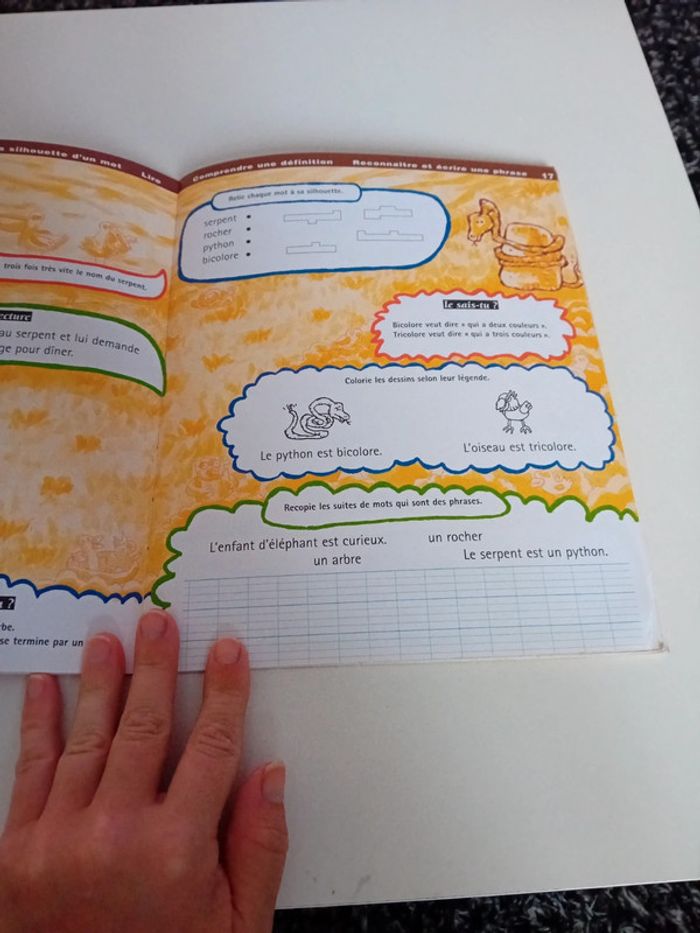 silhouette d'un mot Lire
trois fois très vite le nom du serpent.
au serpent et lui demande
pour dîner.
?
se termine par un
Comprendre une définition Reconnaître et écrire une phrase 17
Relie chaque mot à sa silhouette.
serpent •
rocher •
python •
bicolore •
le sais-tu ?
Bicolore veut dire « qui a deux couleurs ».
Tricolore veut dire « qui a trois couleurs ».
Colorie les dessins selon leur légende.
Le python est bicolore. L'oiseau est tricolore.
Recopie les suites de mots qui sont des phrases.
L'enfant d'éléphant est curieux. un rocher
un arbre Le serpent est un python.